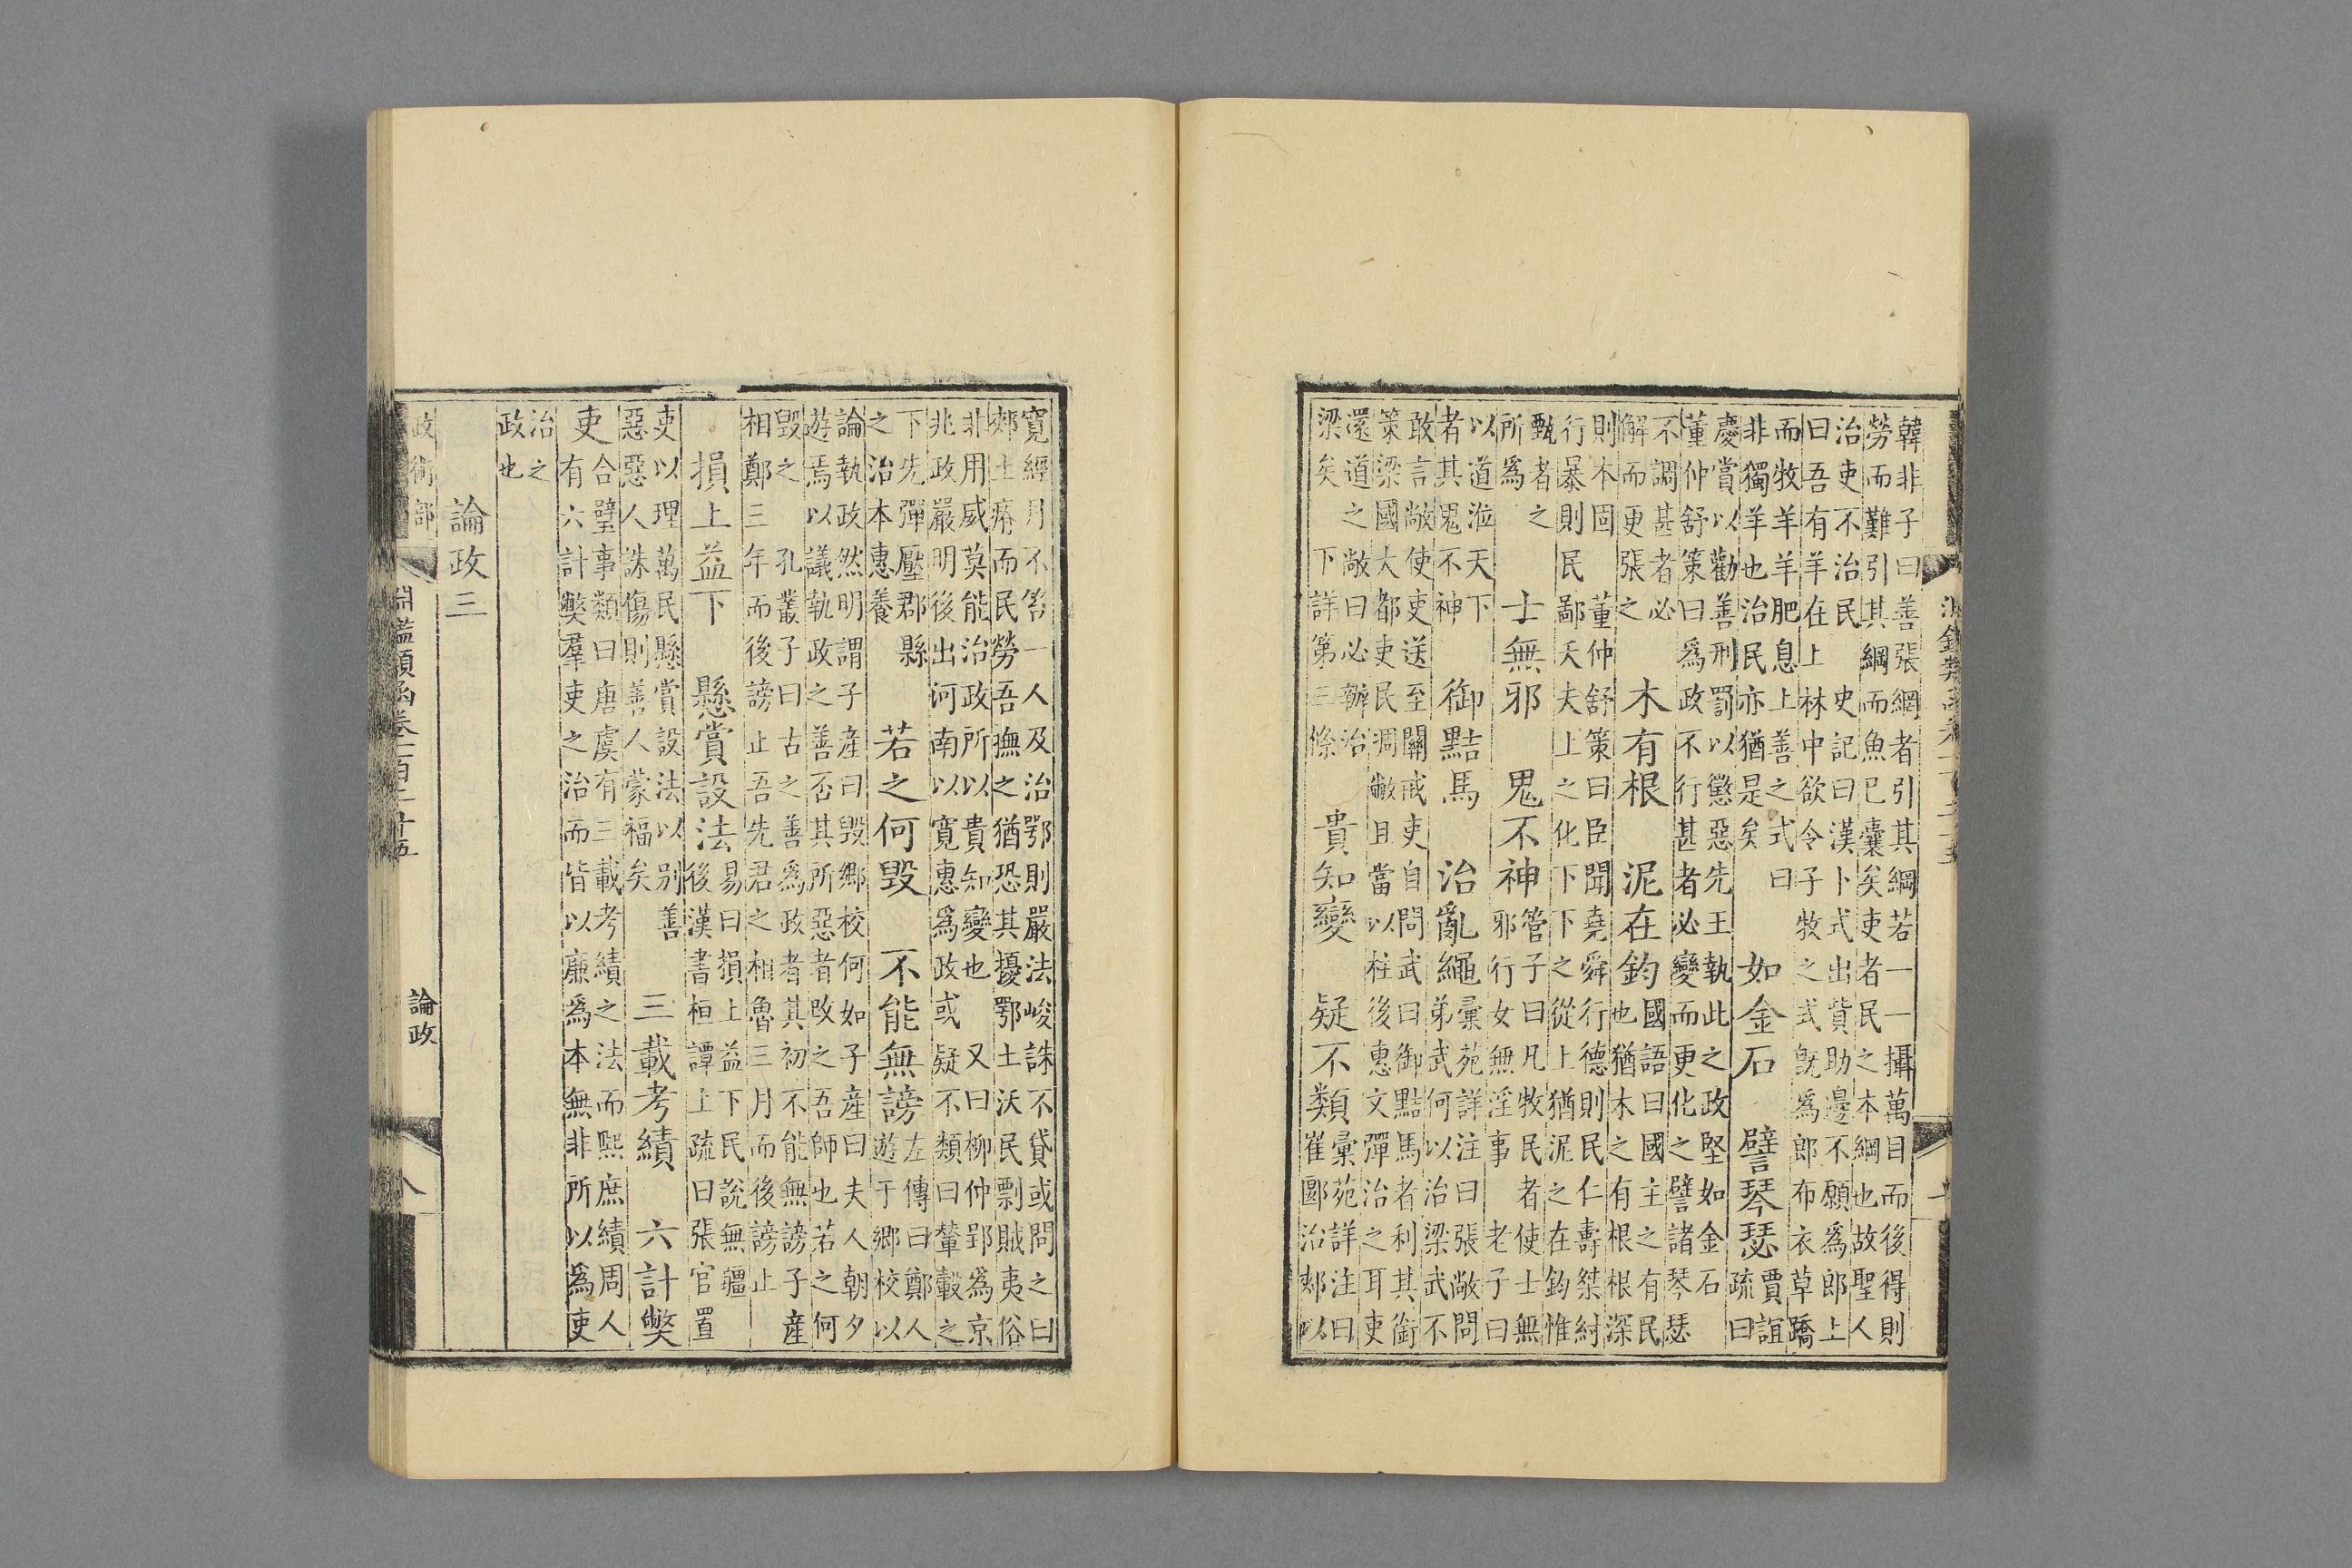 韓非子曰善張綱者引其綱若一一攝萬目而後得則
勞而難引其綱而魚已囊矣吏者民之本綱也故聖人
治吏不治民 史記曰漢卜式出貲助邊不願爲郎上
曰吾有羊在上林中欲令子牧之式旣爲郎布衣草蹻
而牧羊羊肥息上善之式曰
非獨羊也治民亦猶是矣
如金石 譬琴瑟
賈誼
疏曰
慶賞以勸善刑罰以懲惡先王執此之政堅如金石
董仲舒策曰爲政不行甚者必變而更化之譬諸琴瑟
不調甚者必
解而更張之
木有根 泥在鈞
國語曰國主之有民
也猶木之有根根深
則本固 董仲舒策曰臣聞堯舜行德則民仁壽桀紂
行暴則民鄙夭夫上之化下下之從上猶泥之在鈞惟
甄者之
所爲
士無邪 鬼不神
管子曰凡牧民者使士無
邪行女無淫事 老子曰
以道涖天下
者其鬼不神
御黠馬 治亂繩
彙苑詳注曰張敞問
弟武何以治梁武不
敢言敞使吏送至關戒吏自問武曰御黠馬者利其銜
策梁國大都吏民凋敝且當以柱後惠文彈治之耳吏
還道之敞曰必辦治
梁矣 下詳第三條
貴知變 疑不類
彙苑詳注曰
崔郾治郟以
寬經月不笞一人及治鄂則嚴法峻誅不貸或問之曰
郟土瘠而民勞吾撫之猶恐其擾鄂土沃民剽賊夷俗
非用威莫能治政所以貴知變也 又曰柳仲郢爲京
兆政嚴明後出河南以寬惠爲政或疑不類曰輦轂之
下先彈壓郡縣
之治本惠養
若之何毀 不能無謗
左傳曰鄭人
遊于鄉校以
論執政然明謂子産曰毀鄉校何如子産曰夫人朝夕
遊焉以議執政之善否其所惡者改之吾師也若之何
毀之 孔叢子曰古之善爲政者其初不能無謗子産
相鄭三年而後謗止吾先君之相魯三月而後謗止
損上益下 懸賞設法
易曰損上益下民說無疆
後漢書桓譚上疏曰張官置
吏以理萬民懸賞設法以别善
惡惡人誅傷則善人蒙福矣
三載考績 六計弊
吏
合璧事類曰唐虞有三載考績之法而熙庶績周人
有六計弊羣吏之治而皆以廉爲本無非所以爲吏
治之
政也
論政三
政術部 淵鑑類函卷一百二十五 論政 八